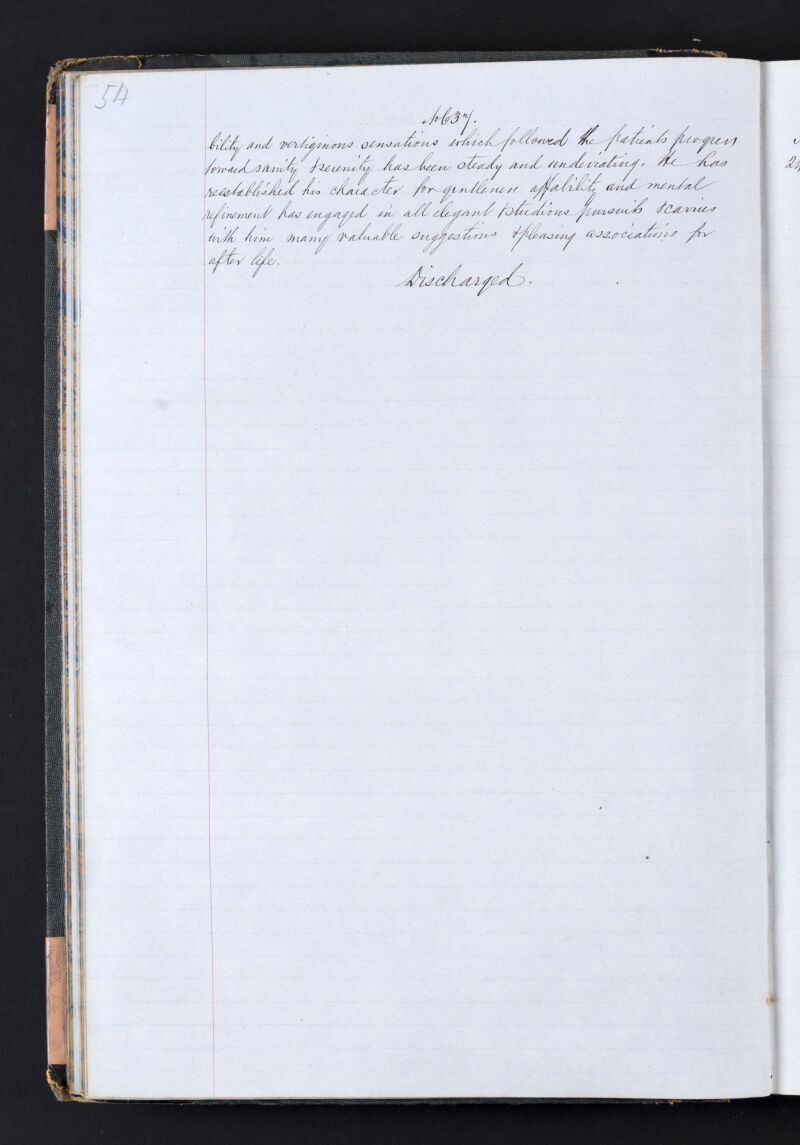 54
No 637.
bility and vertiginous sensations which followed the patients progress
toward sanity & serenity has been steady and undeviating. He has
reestablished his character for gentleness affability and mental
refinement has engaged in all elegant & studious pursuits & carries
with him many valuable suggestions & pleasing associations for
after life.
Discharged.